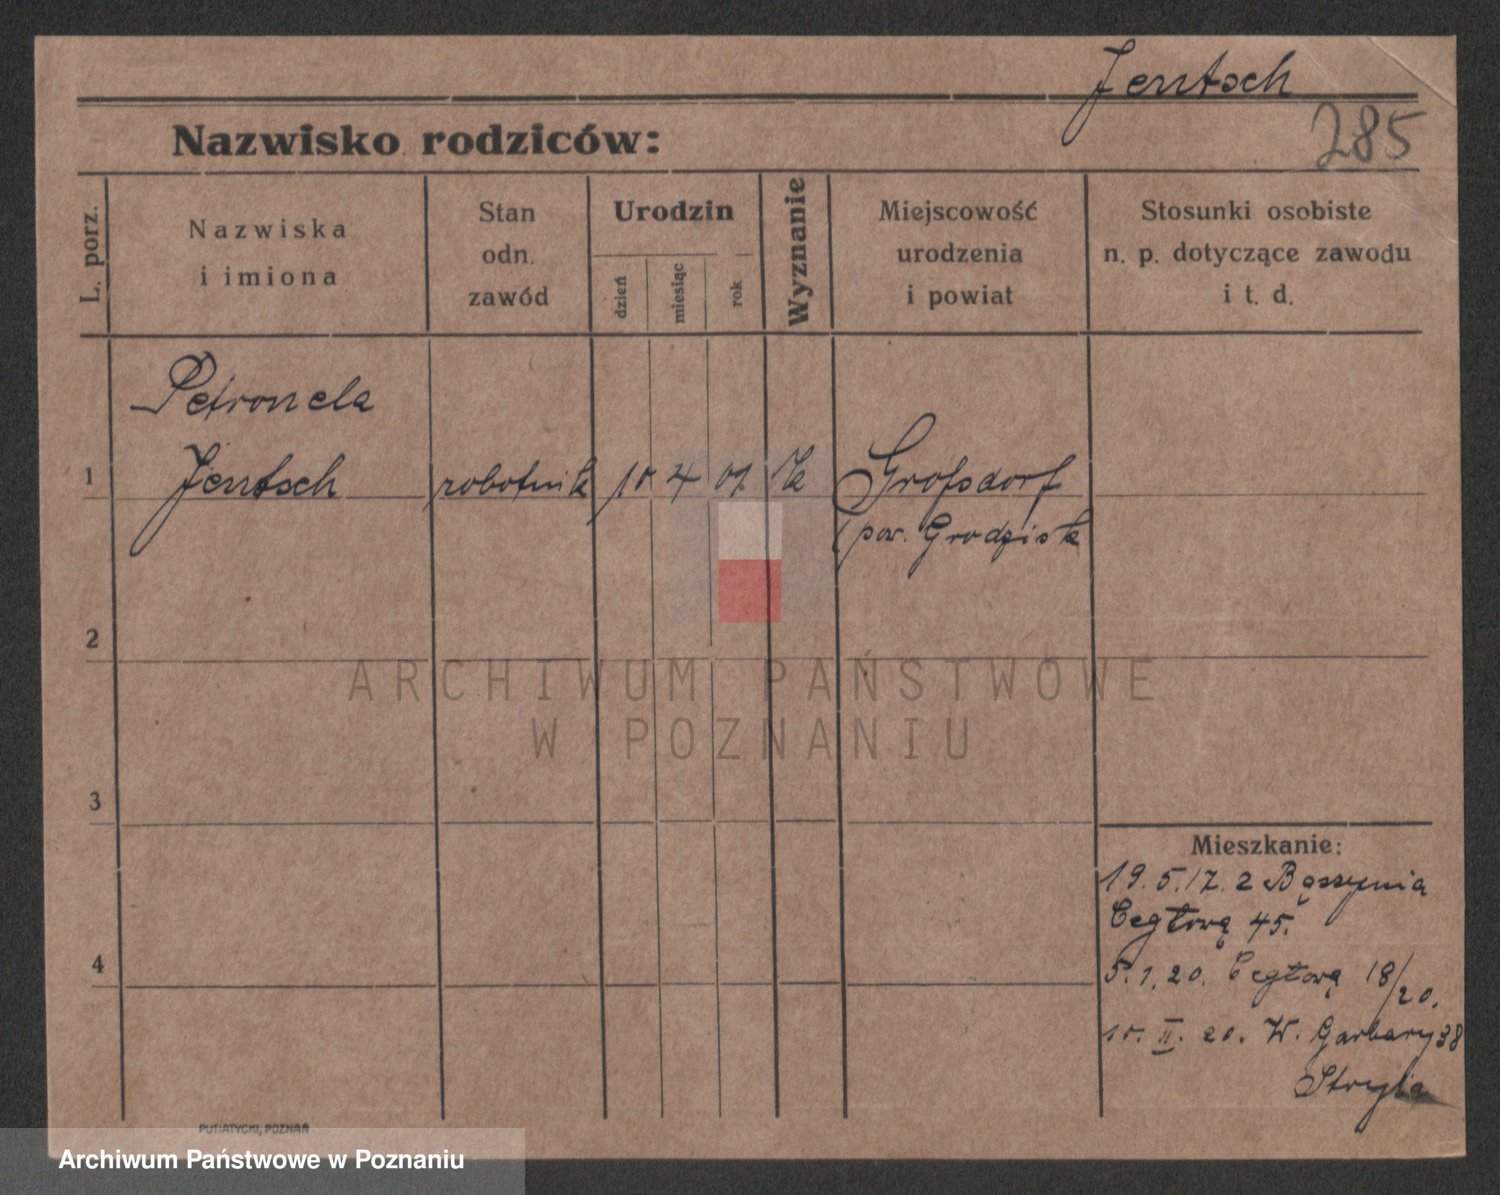 Jentsch
285
Nazwisko rodziców:
L. porz.
Nazwiska
i imiona
Stan
odn.
zawód
Urodzin
dzień
miesiąc
rok
Wyznanie
Miejscowość
urodzenia
i powiat
Stosunki osobiste
n. p. dotyczące zawodu
i t. d.
Petronela
1 Jentsch robotnik 10 4 01 k Grofsdorf
(pow. Grodzisk
2
ARCHIWUM PAŃSTWOWE
W POZNANIU
3
Mieszkanie:
19.5.17. z
Cegłową 45.
4
5.1.20. Cegłową 18/20.
10. II. 20. W. Garbary 38
PUTIATYCKI, POZNAŃ
Archiwum Państwowe w Poznaniu